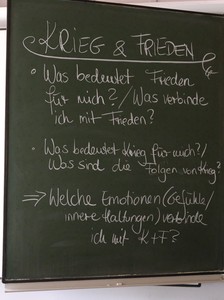 KRIEG & FRIEDEN
• Was bedeutet Frieden
für mich? / Was verbinde
ich mit Frieden?
• Was bedeutet Krieg für mich? /
Was sind die Folgen von Krieg?
⇒ Welche Emotionen (Gefühle/
innere Haltungen) verbinde
ich mit K+F?